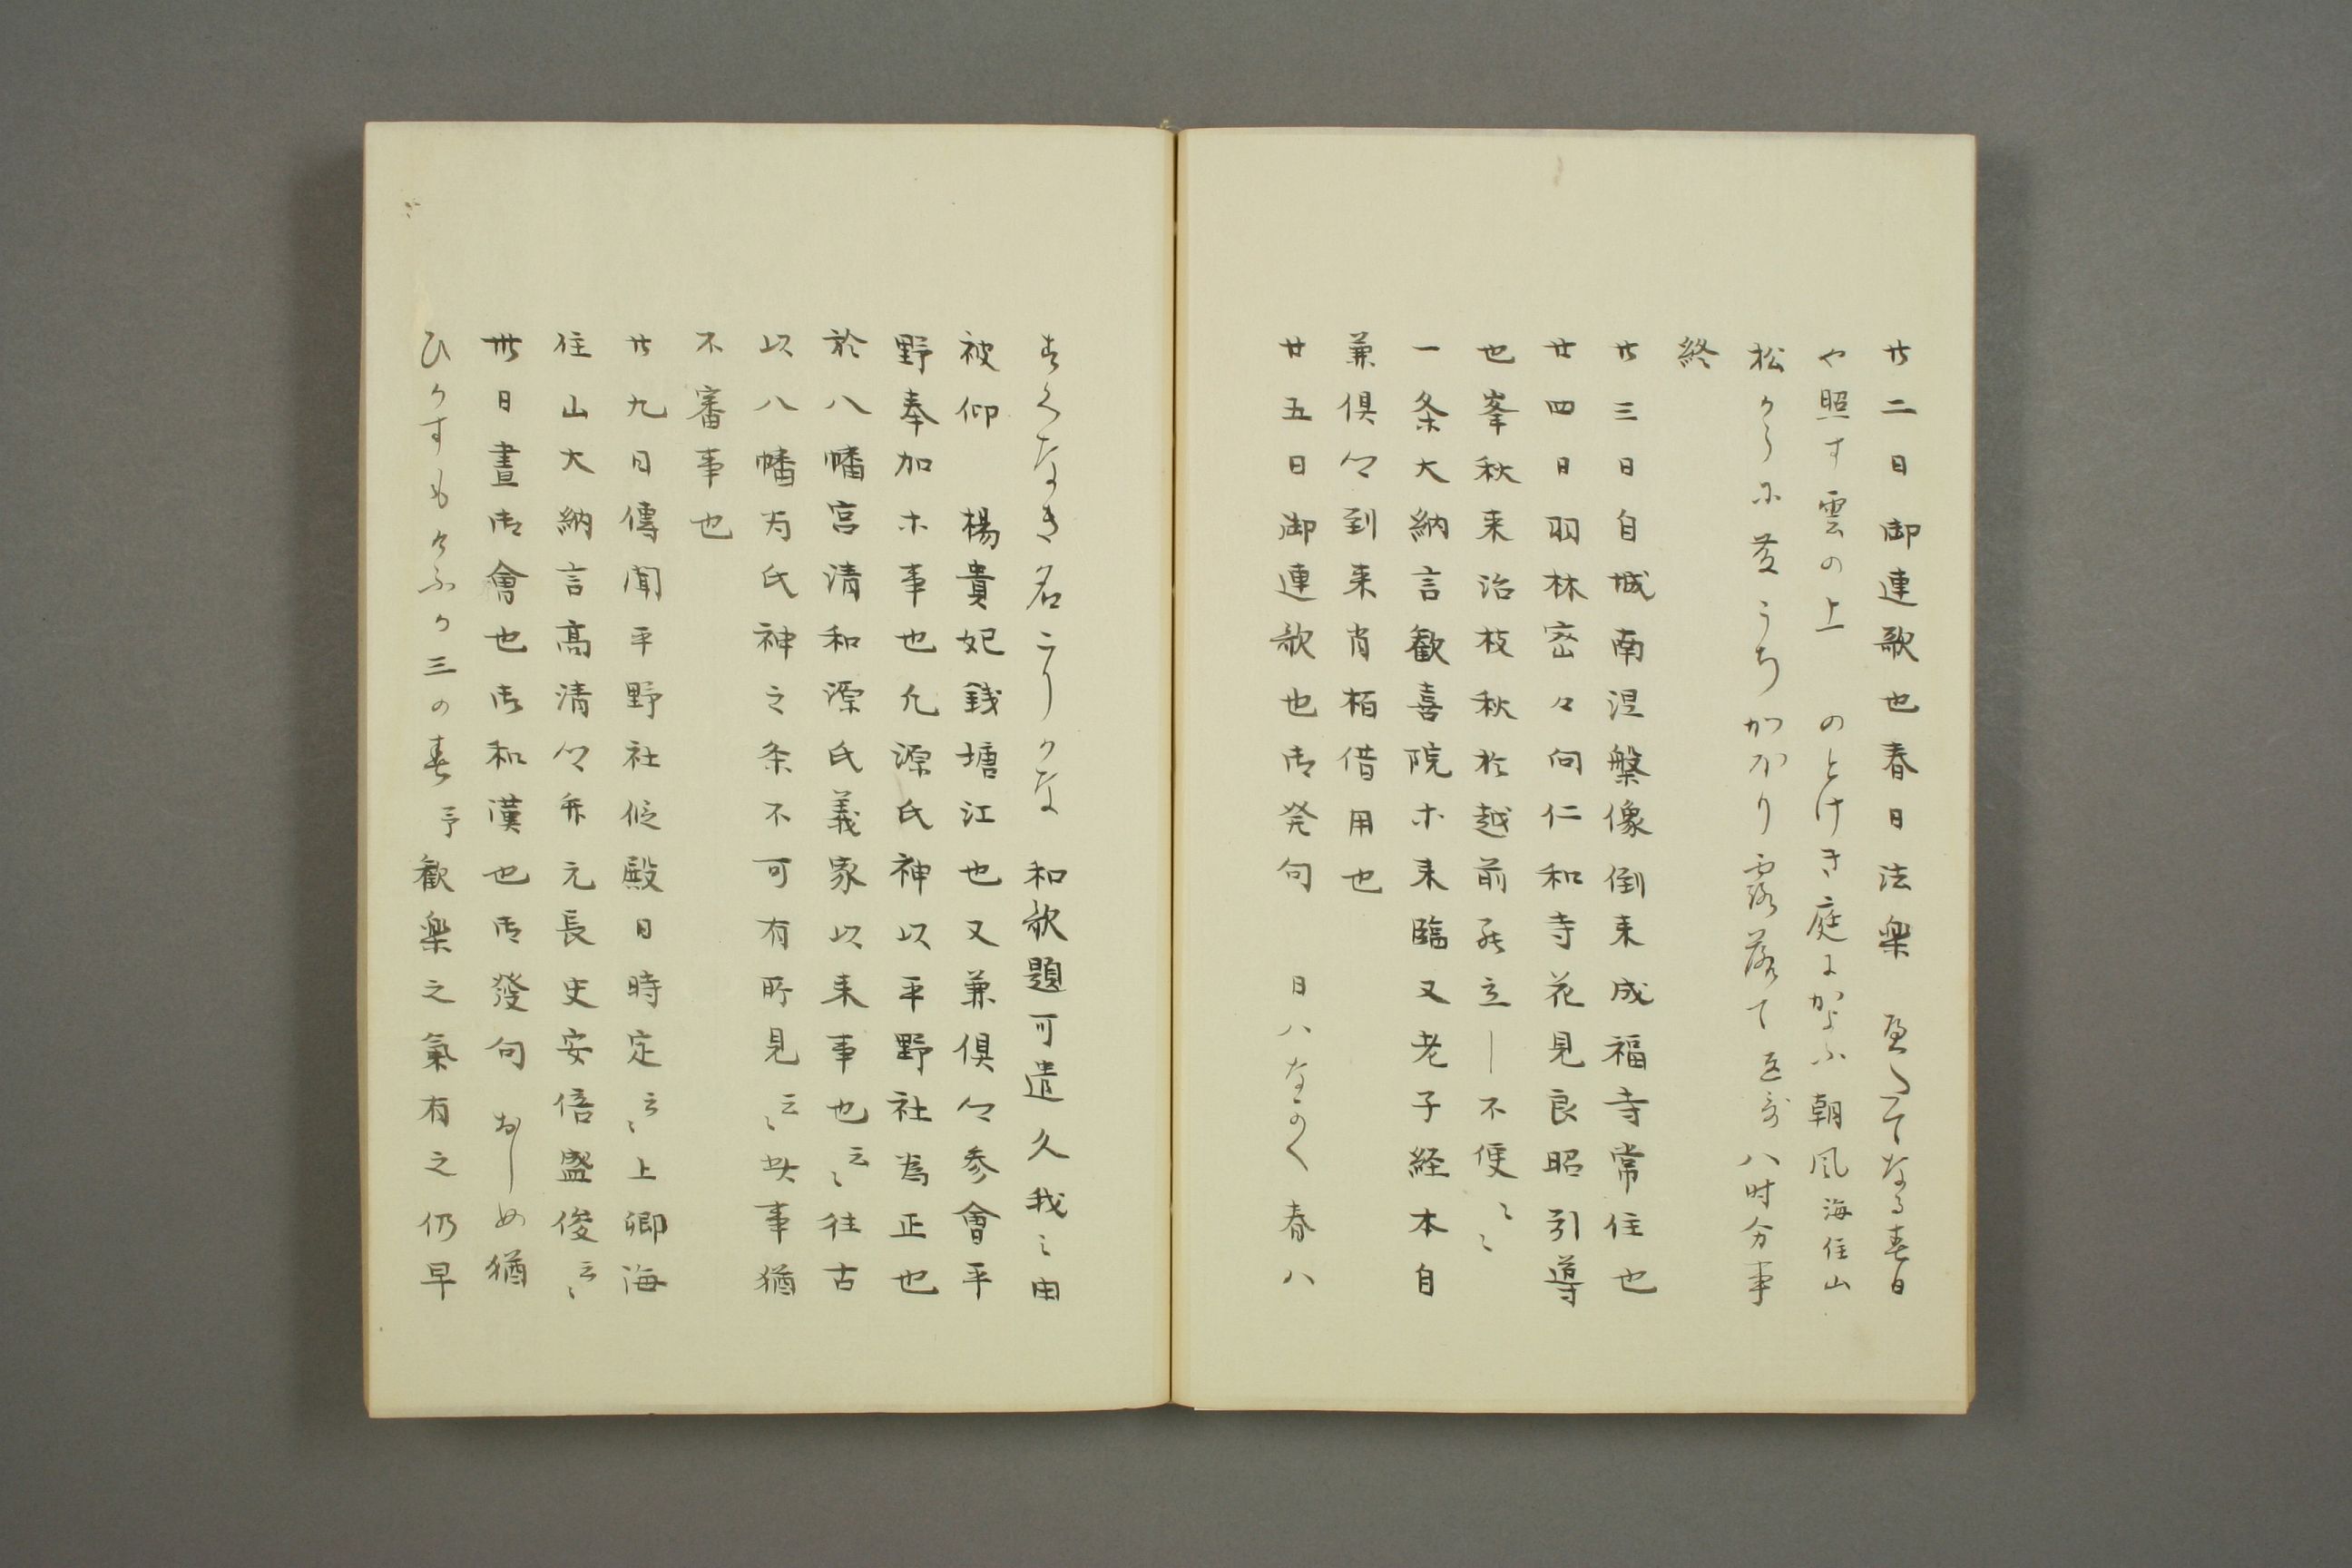 廿二日御連歌也春日法楽 なる春日
や照す雲の上 のとけき庭にかよふ朝風海住山
松 うち かほり露落て 八时分事
終
廿三日自城南涅槃像倒来成福寺常住也
廿四日羽林密々向仁和寺花見良昭引導
也峯秋来治枝秋於越前 立 不便〻〻
一条大納言歓喜院ホ来臨又老子経本自
兼倶々到来肖柏借用也
廿五日御連歌也御発句 日ハなかく春ハ
なき名こりかな 和歌題可遣久我之由
被仰 楊貴妃銭塘江也又兼倶々参會平
野奉加ホ事也凢源氏神以平野社為正也
於八幡宮清和源氏義家以来事也云〻往古
以八幡为氏神之条不可有所見云〻此事猶
不審事也
廿九日傳聞平野社仮殿日時定云〻上卿海
住山大納言高清々弁元長史安倍盛俊云〻
卅日晝御會也御和漢也御發句 おしめ猶
ひかすもけふか三の春 予歓楽之氣有之仍早